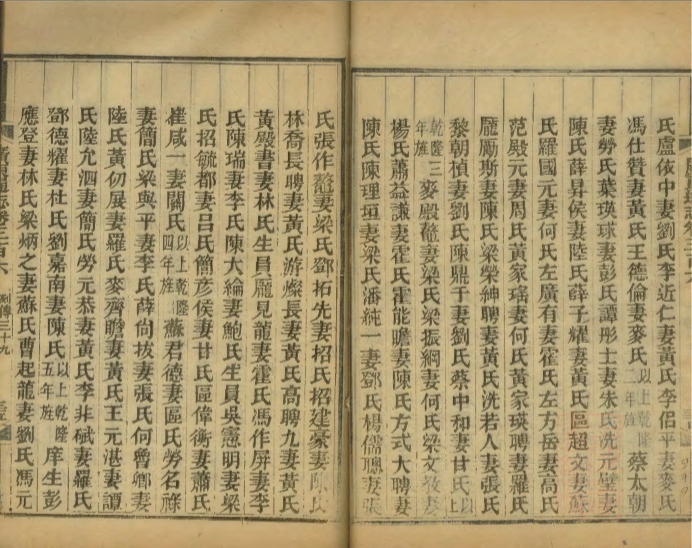 氏盧俊中妻劉氏李近仁妻黃氏李侣平妻麥氏
馮仕贊妻黃氏王德倫妻麥氏以上乾隆二年旌蔡太朝
妻勞氏葉瑛球妻彭氏譚彤士妻朱氏洗元璧妻
陳氏薛昇侯妻陸氏薛子耀妻黃氏區超文妻蘇
氏羅國元妻何氏左廣有妻霍氏左方岳妻高氏
范殿元妻周氏黃家瑤妻何氏黃家瑛聘妻羅氏
龐勵斯妻陳氏梁榮紳聘妻黃氏洗若人妻張氏
黎朝楨妻劉氏陳鼎于妻劉氏蔡中和妻甘氏以上
乾隆三年旌麥殿鼇妻梁氏梁振綱妻何氏梁文妻
楊氏蕭益謙妻霍氏霍能瞻妻陳氏方式大聘妻
陳氏陳理垣妻梁氏潘純一妻鄧氏楊儒聰妻張
氏張作鼇妻梁氏鄧柘先妻招氏招建豪妻陳氏
林喬長聘妻黃氏游燦長妻黃氏高聘九妻黃氏
黃殿書妻林氏生員龐見龍妻霍氏馮作屏妻李
氏陳瑞妻李氏陳大綸妻鮑氏生員吳憲明妻梁
氏招毓都妻呂氏簡彥侯妻甘氏區偉衡妻蕭氏
崔咸一妻關氏以上乾隆四年旌蕭君德妻區氏勞名祿
妻簡氏梁與平妻李氏薛尙拔妻張氏何曾卿妻
陸氏黃仞展妻羅氏麥齊瞻妻黃氏王元湛妻譚
氏陸允泗妻簡氏勞元恭妻黃氏李非碔妻羅氏
鄧德耀妻杜氏劉嘉南妻陳氏以上乾隆五年旌庠生彭
應登妻林氏梁炳之妻蘇氏曹起龍妻劉氏馮元
列傳三十九